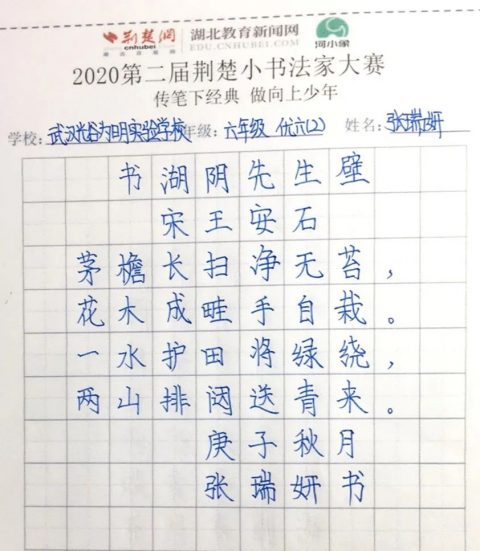 荆楚网
cnhubei.com
湖北教育新闻网
EDU.CNHUBEI.COM
河小象
2020第二届荆楚小书法家大赛
传笔下经典 做向上少年
学校:武汉光谷为明实验学校年级:六年级 优六(2) 姓名:张瑞妍
书湖阴先生壁
宋王安石
茅檐长扫净无苔,
花木成畦手自栽。
一水护田将绿绕,
两山排闼送青来。
庚子秋月
张瑞妍书